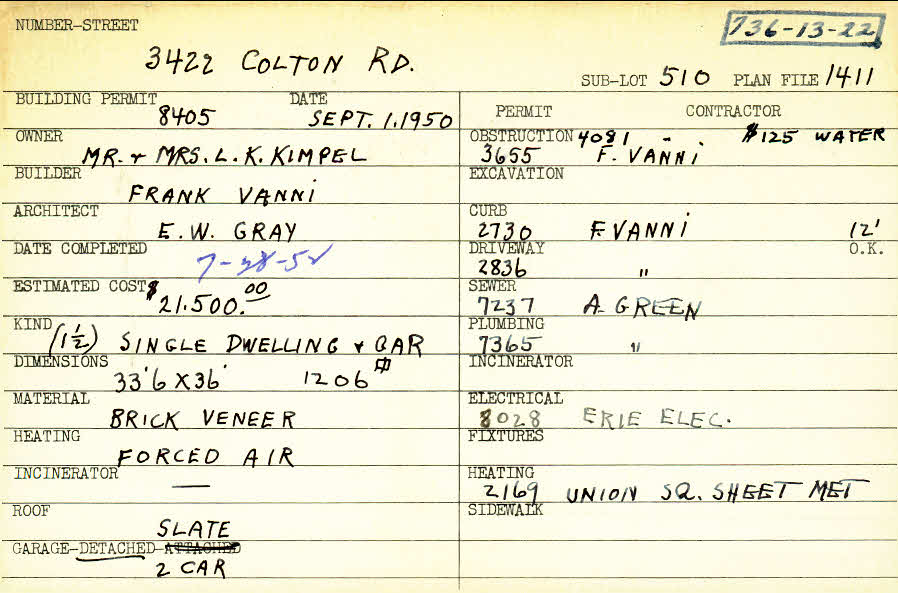 NUMBER-STREET
736-13-22
3422 COLTON RD.
SUB-LOT 510 PLAN FILE 1411
BUILDING PERMIT DATE
8405 SEPT. 1. 1950
OWNER
MR. + MRS. L. K. KIMPEL
BUILDER
FRANK VANNI
ARCHITECT
E. W. GRAY
DATE COMPLETED
ESTIMATED COST $
21.500.00
KIND
(1 1/2) SINGLE DWELLING + GAR
DIMENSIONS
33'6 X 36' 1206
MATERIAL
BRICK VENEER
HEATING
FORCED AIR
INCINERATOR
—
ROOF
SLATE
GARAGE-DETACHED-ATTACHED
2 CAR
PERMIT CONTRACTOR
OBSTRUCTION 4081 " $125 WATER
3655 F. VANNI
EXCAVATION
CURB
2730 F. VANNI 12'
DRIVEWAY O.K.
2836 "
SEWER
7237 A. GREEN
PLUMBING
7365 "
INCINERATOR
ELECTRICAL
8028 ERIE ELEC.
FIXTURES
HEATING
2169 UNION SQ. SHEET MET
SIDEWALK